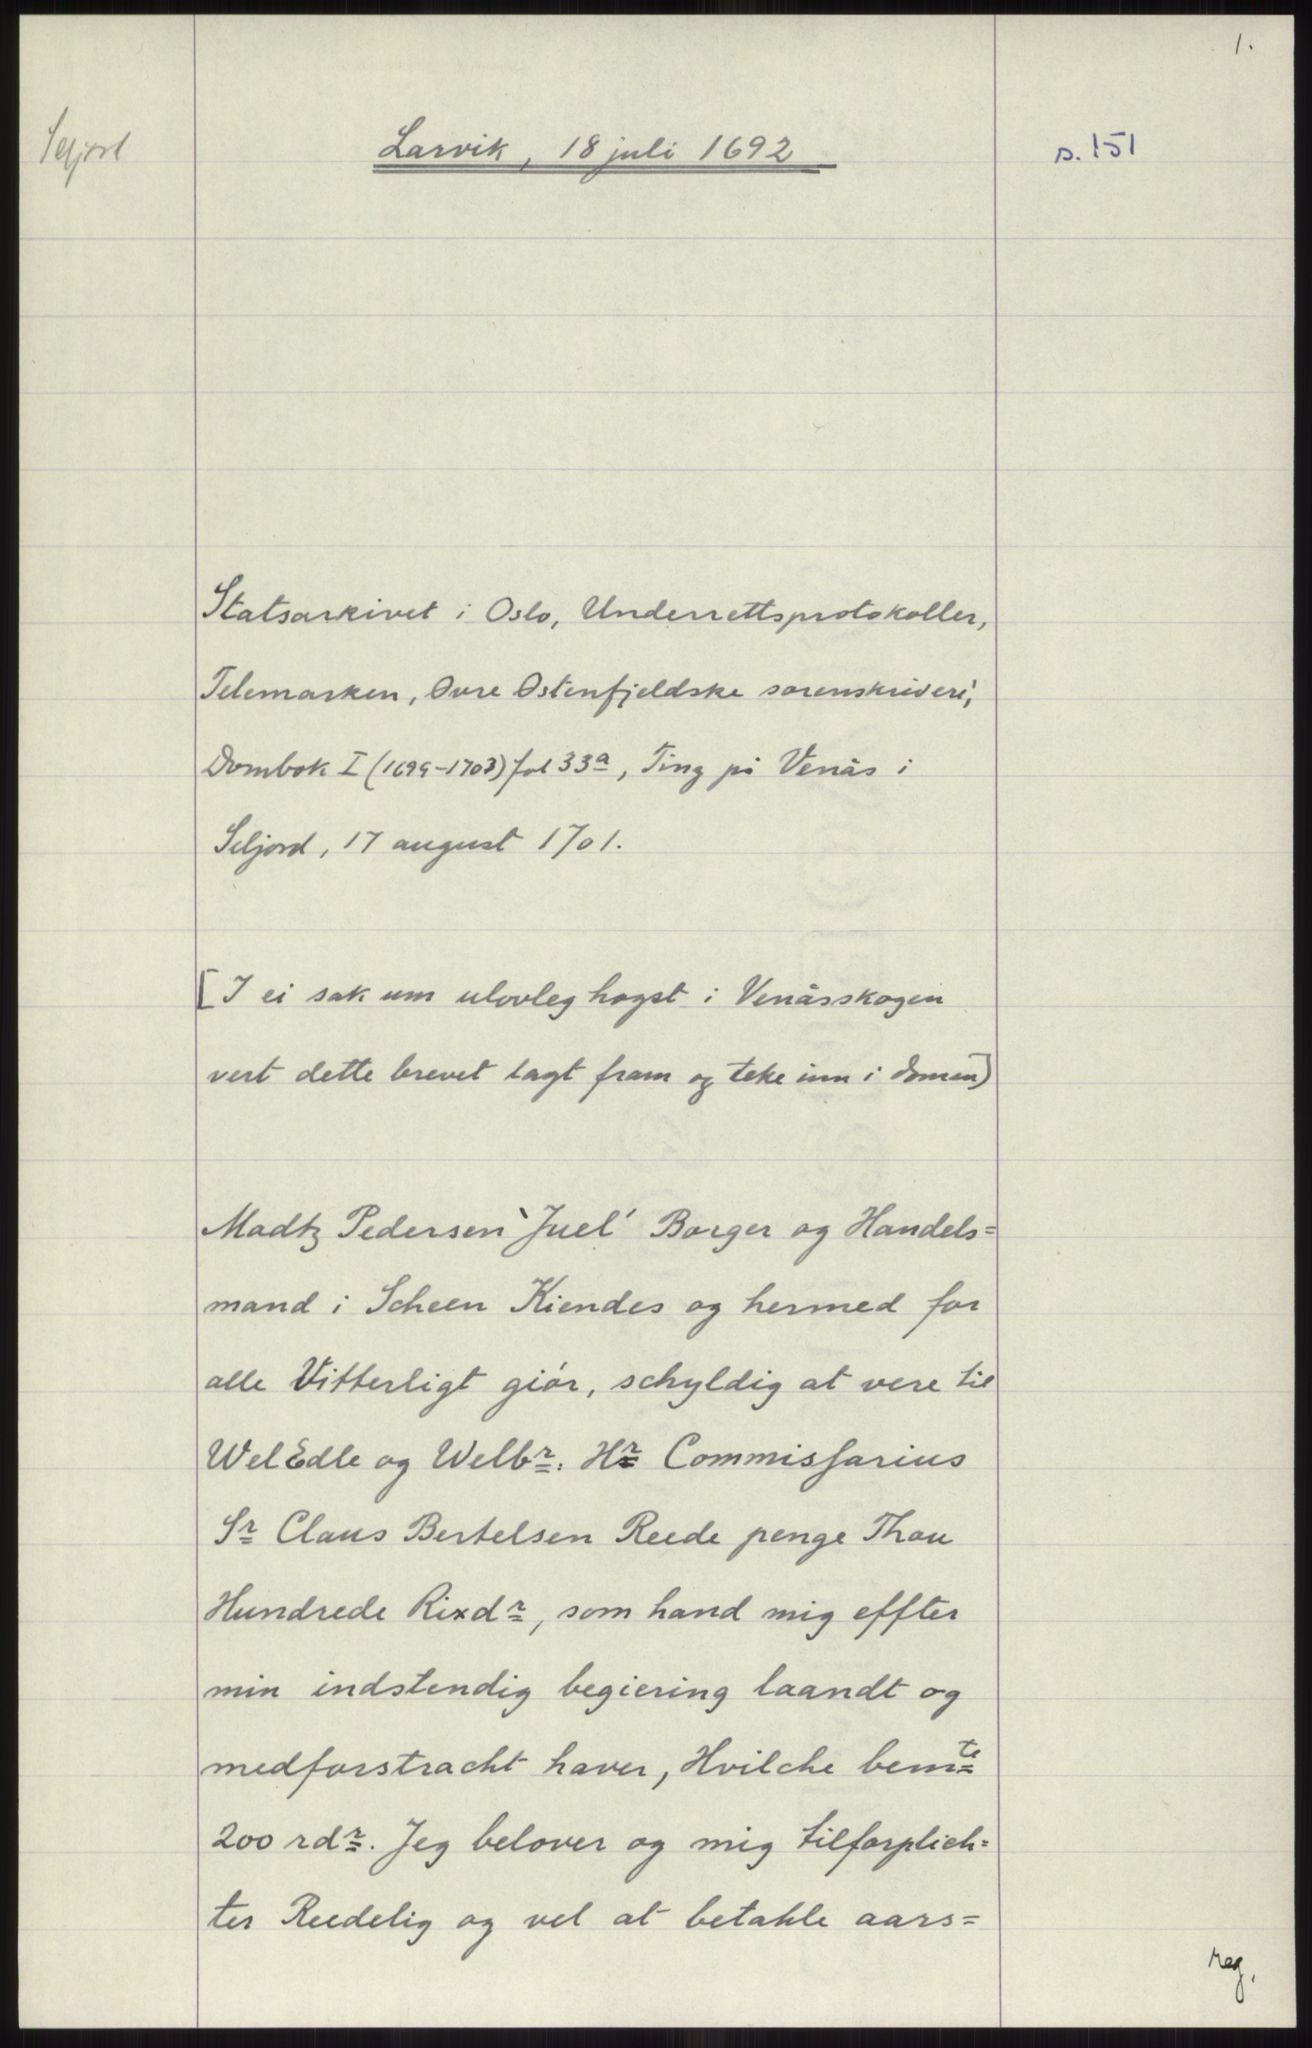 1.
Seljord
Larvik, 18 juli 1692
s. 151
Statsarkivet i Oslo, Underrettsprotokoller,
Telemarken, Øvre Østenfjeldske sorenskriveri,
Dombok I (1699-1703) fol 33a, Ting på Venås i
Seljord, 17 august 1701.
[I ei sak um ulovleg hogst i Venåsskogen
vert dette brevet lagt fram og teke inn i domen]
Madtz Pedersen `Juel´ Borger og Handels=
mand i Scheen Kiendes og hermed for
alle Vitterligt giór, schyldig at vere til
WelEdle og Welbr. Hr Commissarius
Sr Claus Bertelsen Reede penge Thou
Hundrede Rixdr, som hand mig effter
min indstendig begiering laandt og
medforstracht haver, Hvilche bemte
200 rdr. Jeg belover og mig tilforplich=
ter Reedelig og vel at betahle aars=
reg.